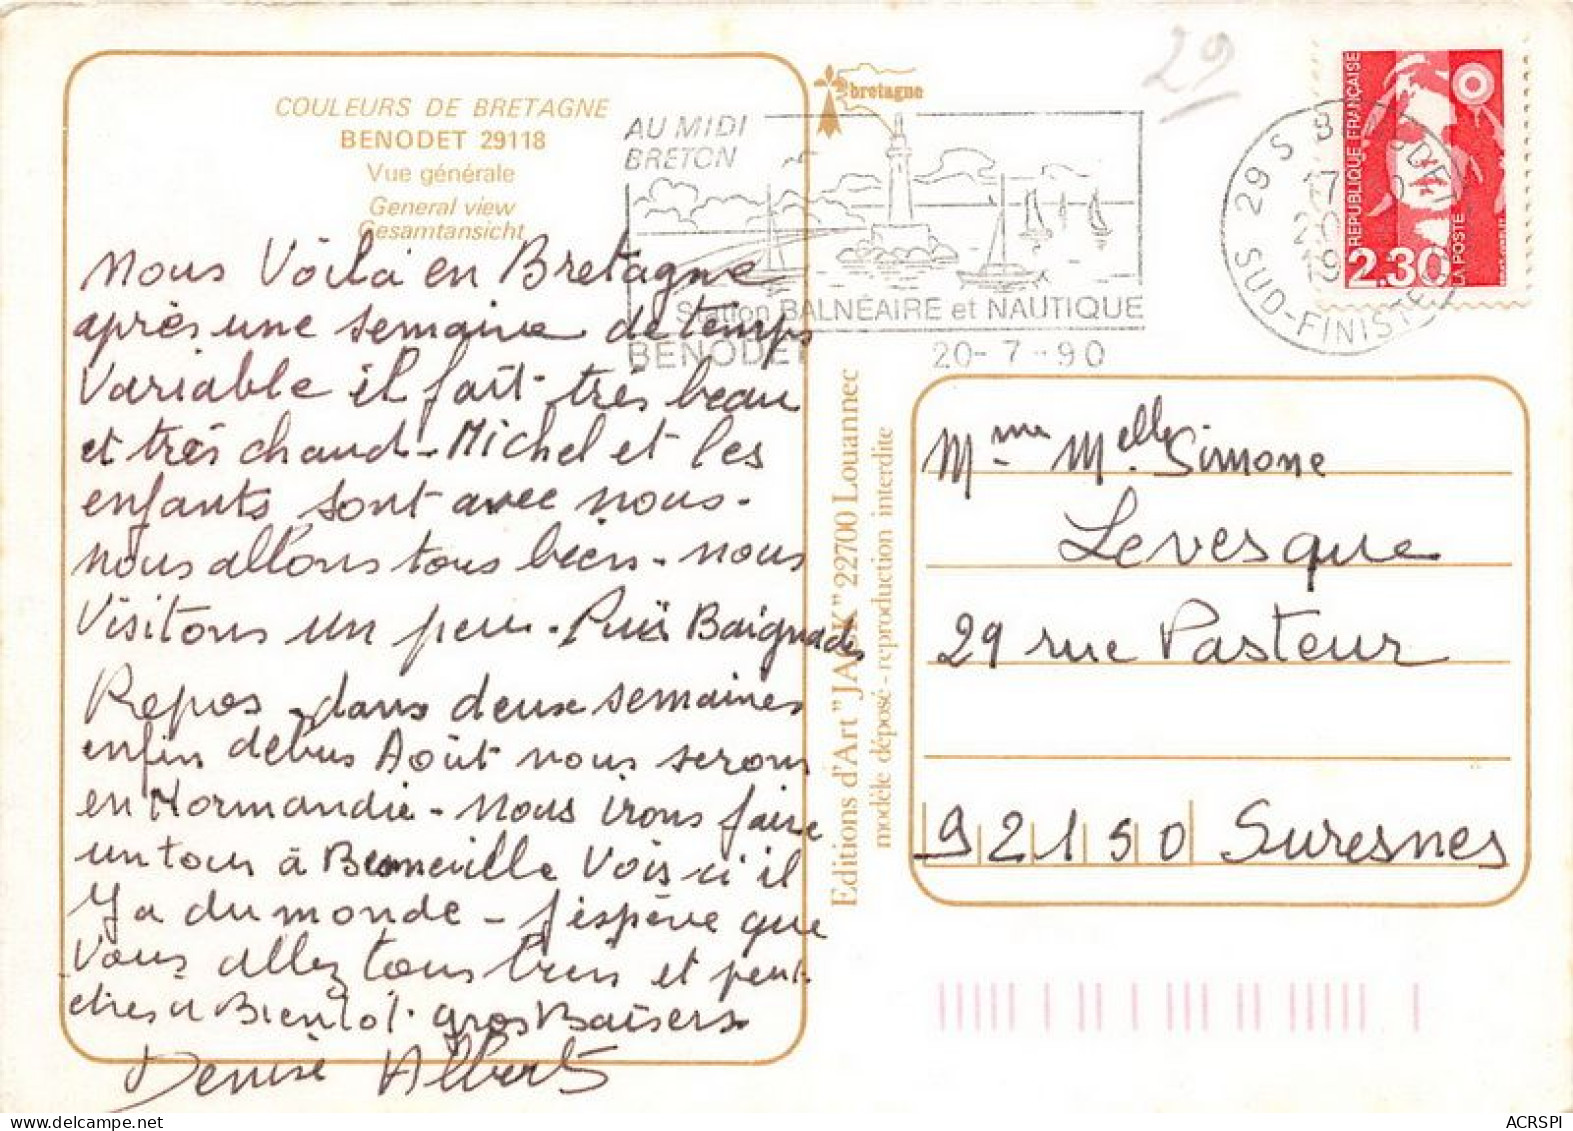 COULEURS DE BRETAGNE
BENODET 29118
Vue générale
General view
Gesamtansicht
Nous Voilà en Bretagne
après une semaine de temps
Variable il fait très beau
et très chaud - Michel et les
enfants sont avec nous -
nous allons tous bien - nous
Visitons un peu - Puis Baignades
Repos - dans deux semaines
enfin debus Août nous serons
en Normandie - Nous irons faire
un tour à Benneville Vois ci il
Y a du monde - J'espère que
Vous allez tous bien et peut-
être à Bientot. gros Baisers
Denise Albert
bretagne
AU MIDI
BRETON
Station BALNÉAIRE et NAUTIQUE
BENODET 20-7-90
29
29 S
SUD-FINISTE
17
19
RÉPUBLIQUE FRANÇAISE
2.30
LA POSTE
Editions d'Art "JACK" 22700 Louannec
modèle déposé - reproduction interdite
Mme Melle Simone
Levesque
29 rue Pasteur
92150 Suresnes
ACRSPI